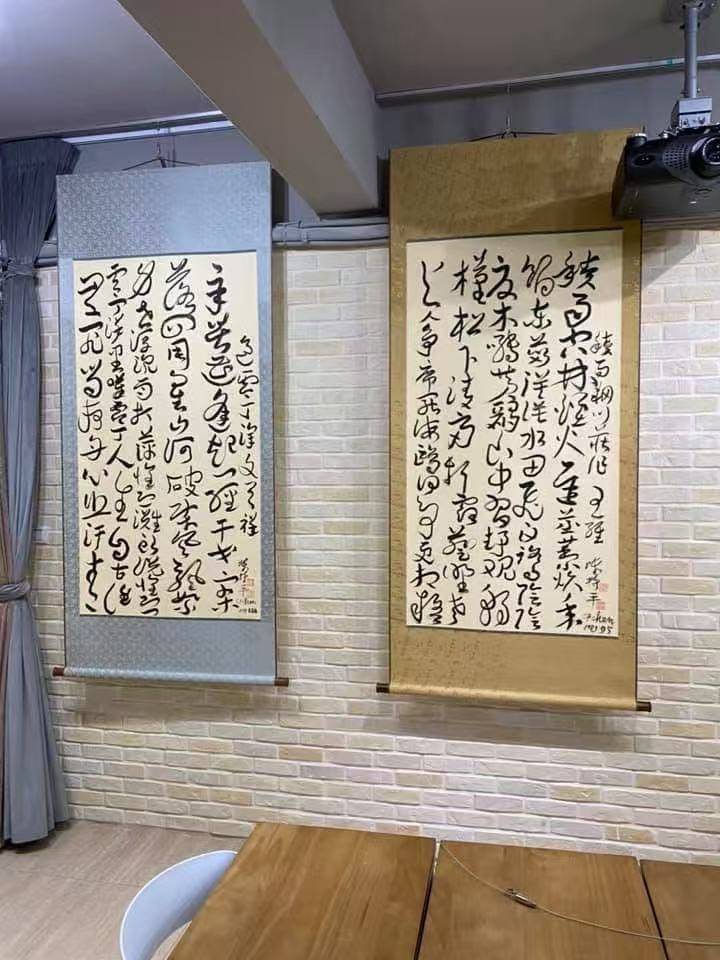 積雨輞川莊作 王維
積雨空林煙火遲蒸藜炊黍
餉東菑漠漠水田飛白鷺陰陰
夏木囀黃鸝山中習靜觀朝
槿松下清齋折露葵野老
與人爭席罷海鷗何事更相疑
過零丁洋 文天祥
辛苦遭逢起一經干戈寥
落四周星山河破碎風飄絮
身世浮沉雨打萍惶恐灘頭說惶恐
零丁洋里嘆零丁人生自古誰
無死留取丹心照汗青